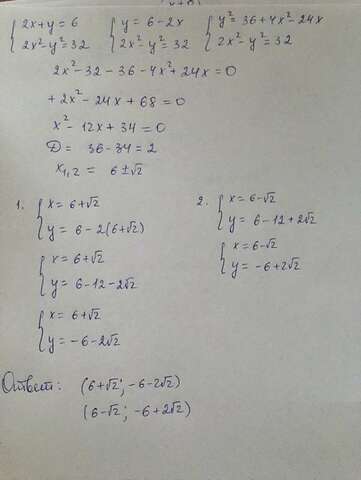 {2x+y=6 {y=6-2x {y²=36+4x²-24x
{2x²-y²=32 {2x²-y²=32 {2x²-y²=32
2x²-32-36-4x²+24x=0
+2x²-24x+68=0
x²-12x+34=0
D= 36-34=2
x₁,₂= 6±√2
1. {x=6+√2 2. {x=6-√2
{y=6-2(6+√2) {y=6-12+2√2
{x=6+√2 {x=6-√2
{y=6-12-2√2 {y=-6+2√2
{x=6+√2
{y=-6-2√2
Ответ: (6+√2; -6-2√2)
(6-√2; -6+2√2)